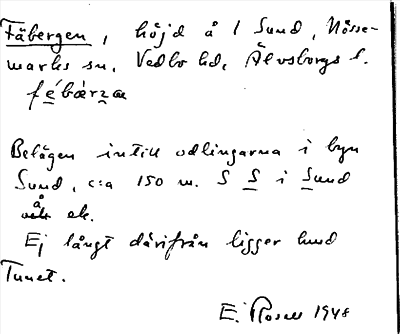 Fäbergen, höjd å 1 Sund, Nösse-
marks sn, Vedbo hd, Älvsborgs l.
fébærzæ
Belägen intill odlingarna i byn
Sund, c:a 150 m. S S i Sund
å ek.
Ej långt därifrån ligger lund
Tunet.
E. Rosell 1948